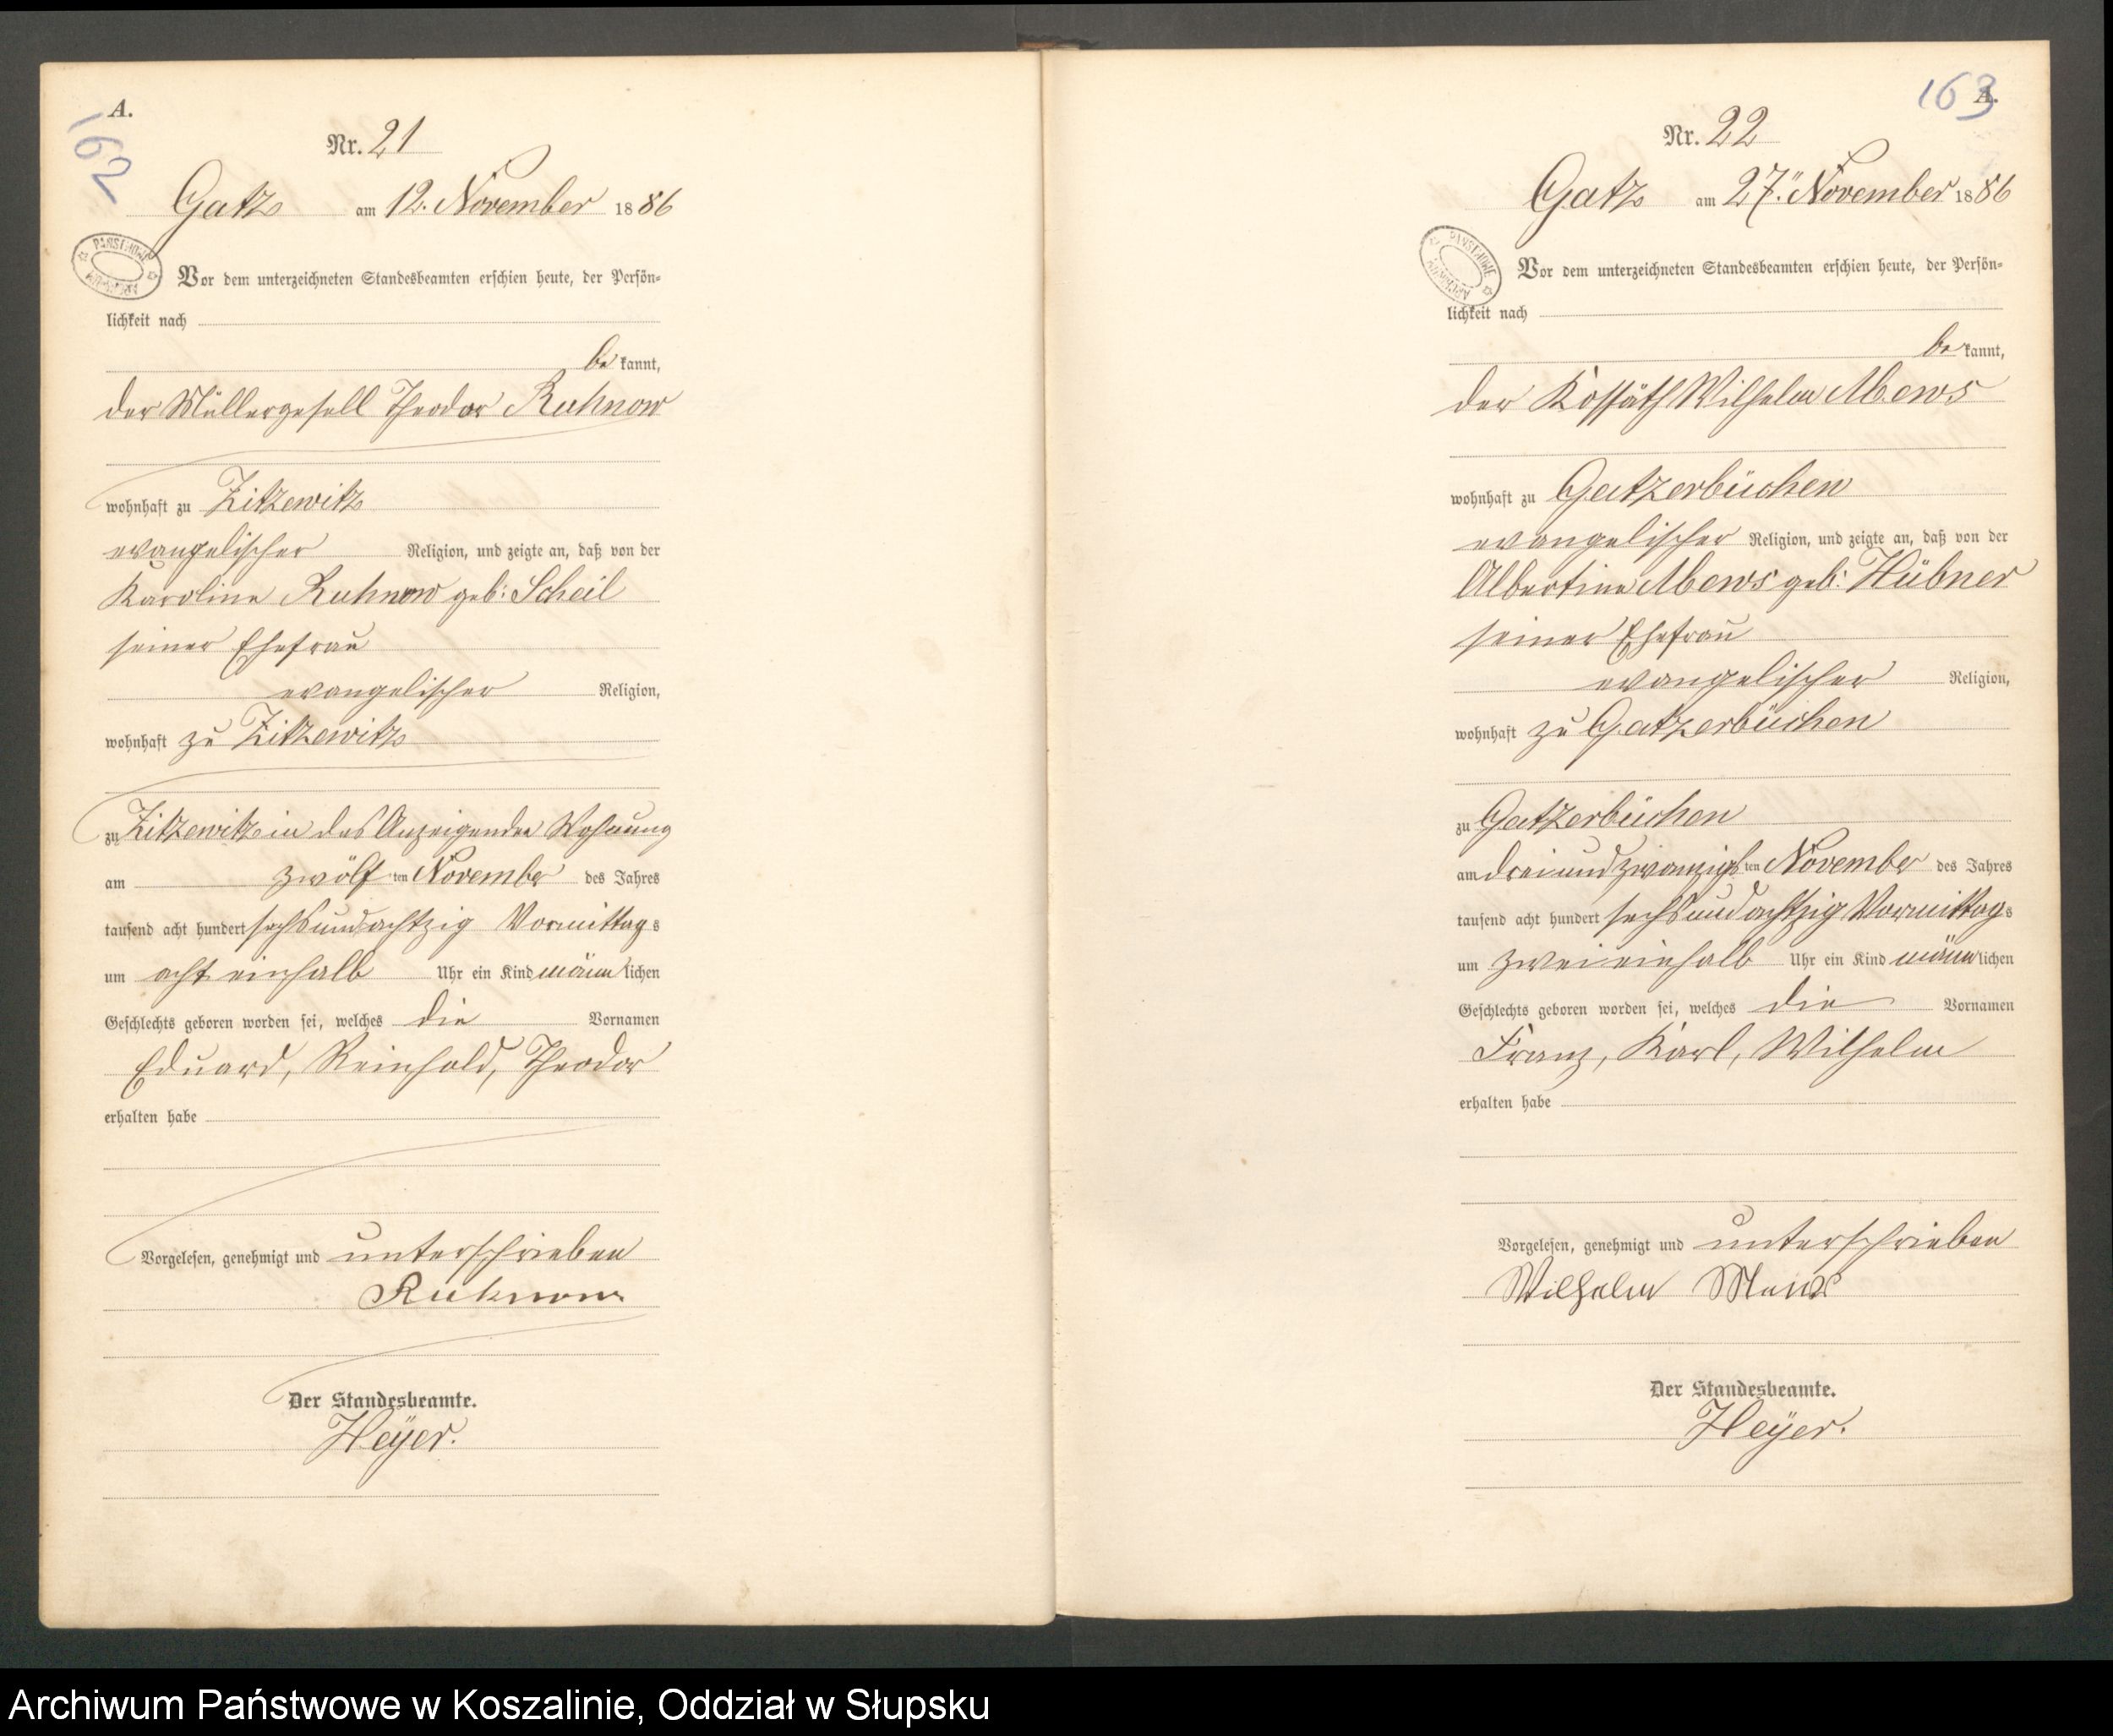 A.
162
Nr. 21
Gatz am 12. November 1886
Vor dem unterzeichneten Standesbeamten erschien heute, der Persön-
lichkeit nach
bekannt,
der Müllergesell Theodor Ruhnow
wohnhaft zu Zitzewitz
evangelischer Religion, und zeigte an, daß von der
Karoline Ruhnow geb: Scheil
seiner Ehefrau
evangelischer Religion,
wohnhaft zu Zitzewitz
zu Zitzewitz in des Anzeigenden Wohnung
am zwölften November des Jahres
tausend acht hundert sechsundachtzig Vormittags
um acht einhalb Uhr ein Kind männlichen
Geschlechts geboren worden sei, welches die Vornamen
Eduard, Reinhold, Theodor
erhalten habe
Vorgelesen, genehmigt und unterschrieben
Ruhnow
Der Standesbeamte.
Heÿer.
163
A.
Nr. 22
Gatz am 27. November 1886
Vor dem unterzeichneten Standesbeamten erschien heute, der Persön-
lichkeit nach
bekannt,
der Kossäth Wilhelm Mews
wohnhaft zu Gatzerbüchen
evangelischer Religion, und zeigte an, daß von der
Albertine Mews geb: Hübner
seiner Ehefrau
evangelischer Religion,
wohnhaft zu Gatzerbüchen
zu Gatzerbüchen
am dreiundzwanzigsten November des Jahres
tausend acht hundert sechsundachtzig Vormittags
um zwei einhalb Uhr ein Kind männlichen
Geschlechts geboren worden sei, welches die Vornamen
Franz, Karl, Wilhelm
erhalten habe
Vorgelesen, genehmigt und unterschrieben
Wilhelm Mews
Der Standesbeamte.
Heÿer.
Archiwum Państwowe w Koszalinie, Oddział w Słupsku